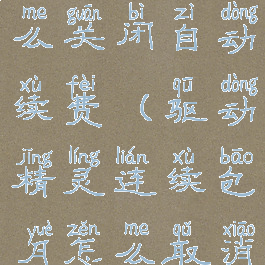 me guān bì zì dòng
么关闭自动
xù fèi qū dòng
续费（驱动
jīng líng lián xù bāo
精灵连续包
yuè zěn me qǔ xiāo
月怎么取消